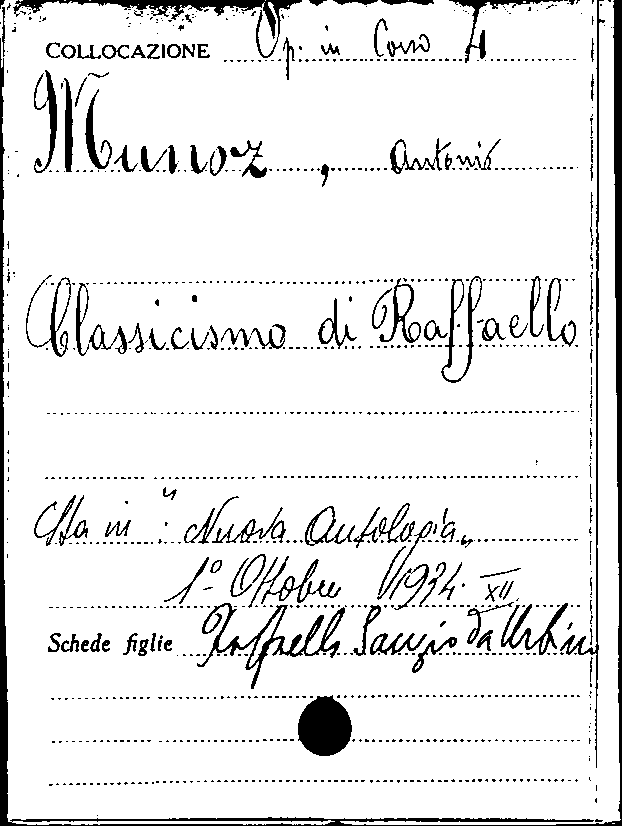 COLLOCAZIONE Op. in Corso 4
Munoz, Antonio
Classicismo di Raffaello
Sta in: "Nuova Antologia„
1º Ottobre 1934. XII
Schede figlie Raffaello Sanzio da Urbino